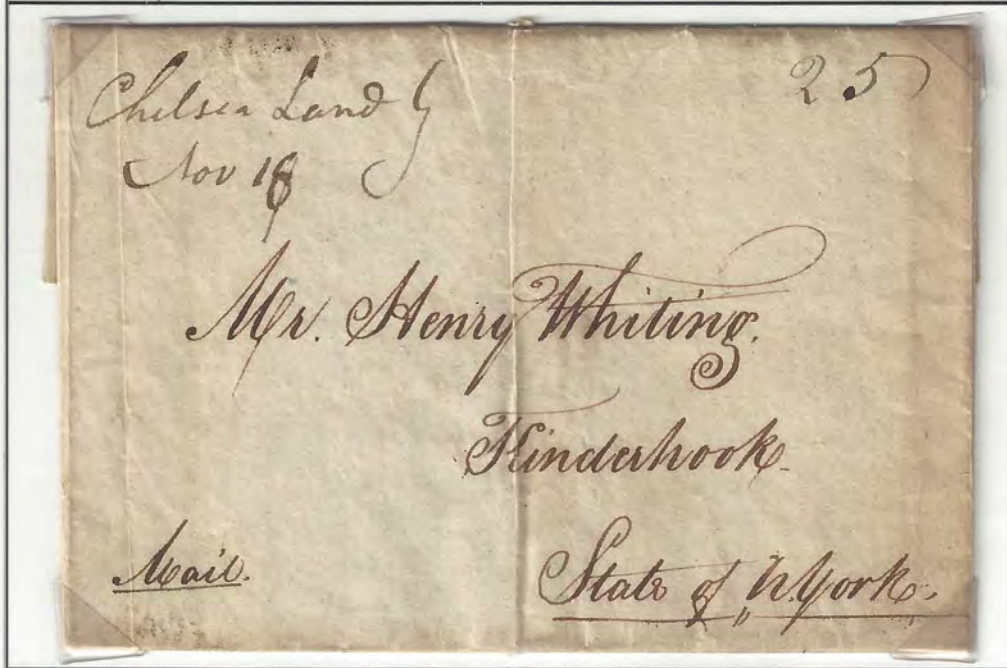 Chelsea Land g
Nov 18
25
Mr. Henry Whiting.
Kinderhook
Mail.
State of N. York.